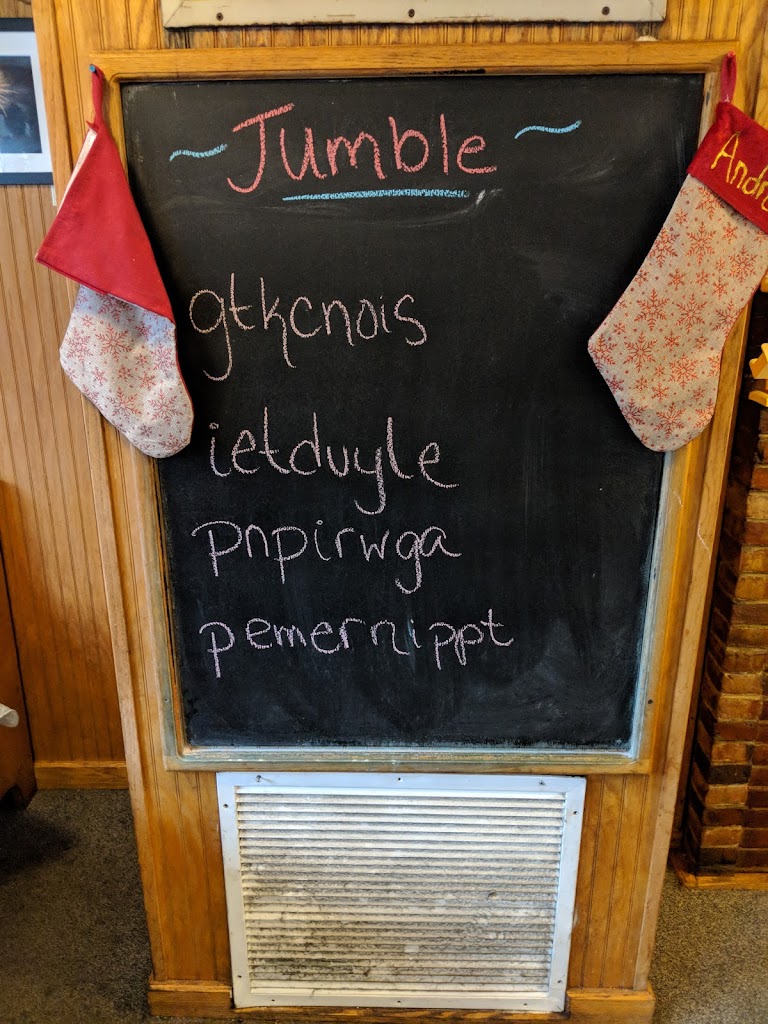 ~ Jumble ~
Andr
gtkcnois
ietduyle
pnpirwga
pemernippt